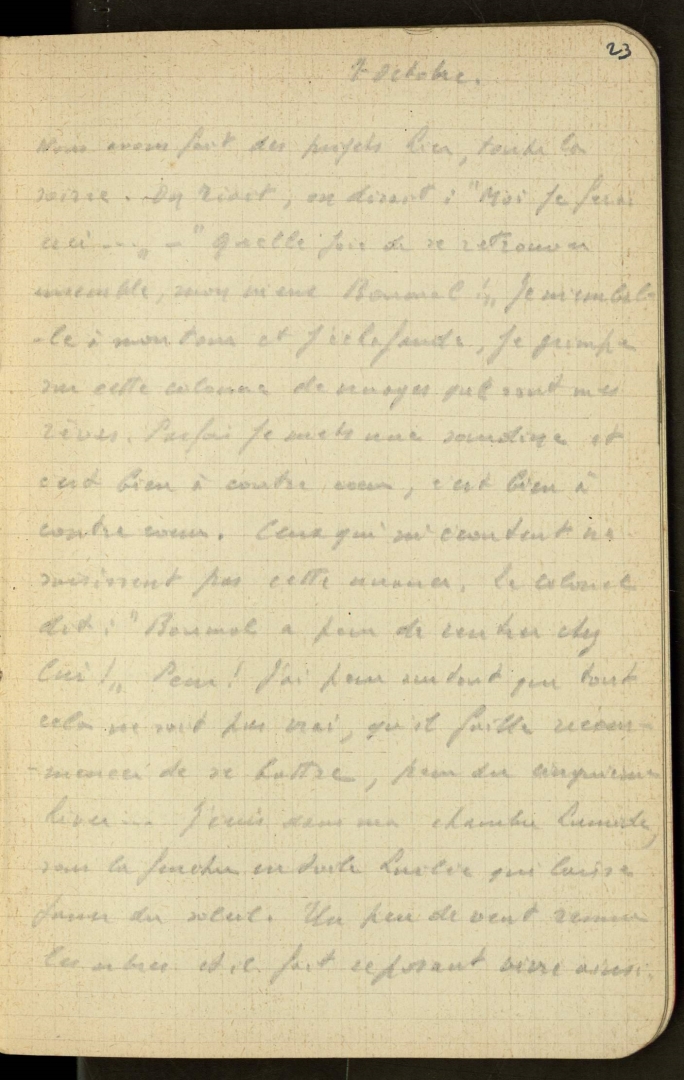 23
Octobre.
Nous avons fait des projets hier, toute la
soirée. On riait, on disait : "Moi je ferai
ceci ... „ – " Quelle joie de se retrouver
ensemble, mon vieux Bonmol !„ Je m'embal-
-le à mon tour et j'échafaude, je grimpe
sur cette colonne de nuages que sont mes
rêves. Parfois je mets une sourdine et
c'est bien à contre cœur, c'est bien à
contre cœur. Ceux qui m'écoutent ne
saisissent pas cette nuance. Le colonel
dit : " Bonmol a peur de rentrer chez
lui !„ Peur ! J'ai peur surtout que tout
cela ne soit pas vrai, qu'il faille recom-
-mencer de se battre, peur du cinquième
hiver ... J'écris dans ma chambre humide,
sous la fenêtre en toile huilée qui laisse
passer du soleil. Un peu de vent remue
les arbres et il fait reposant vivre ainsi.